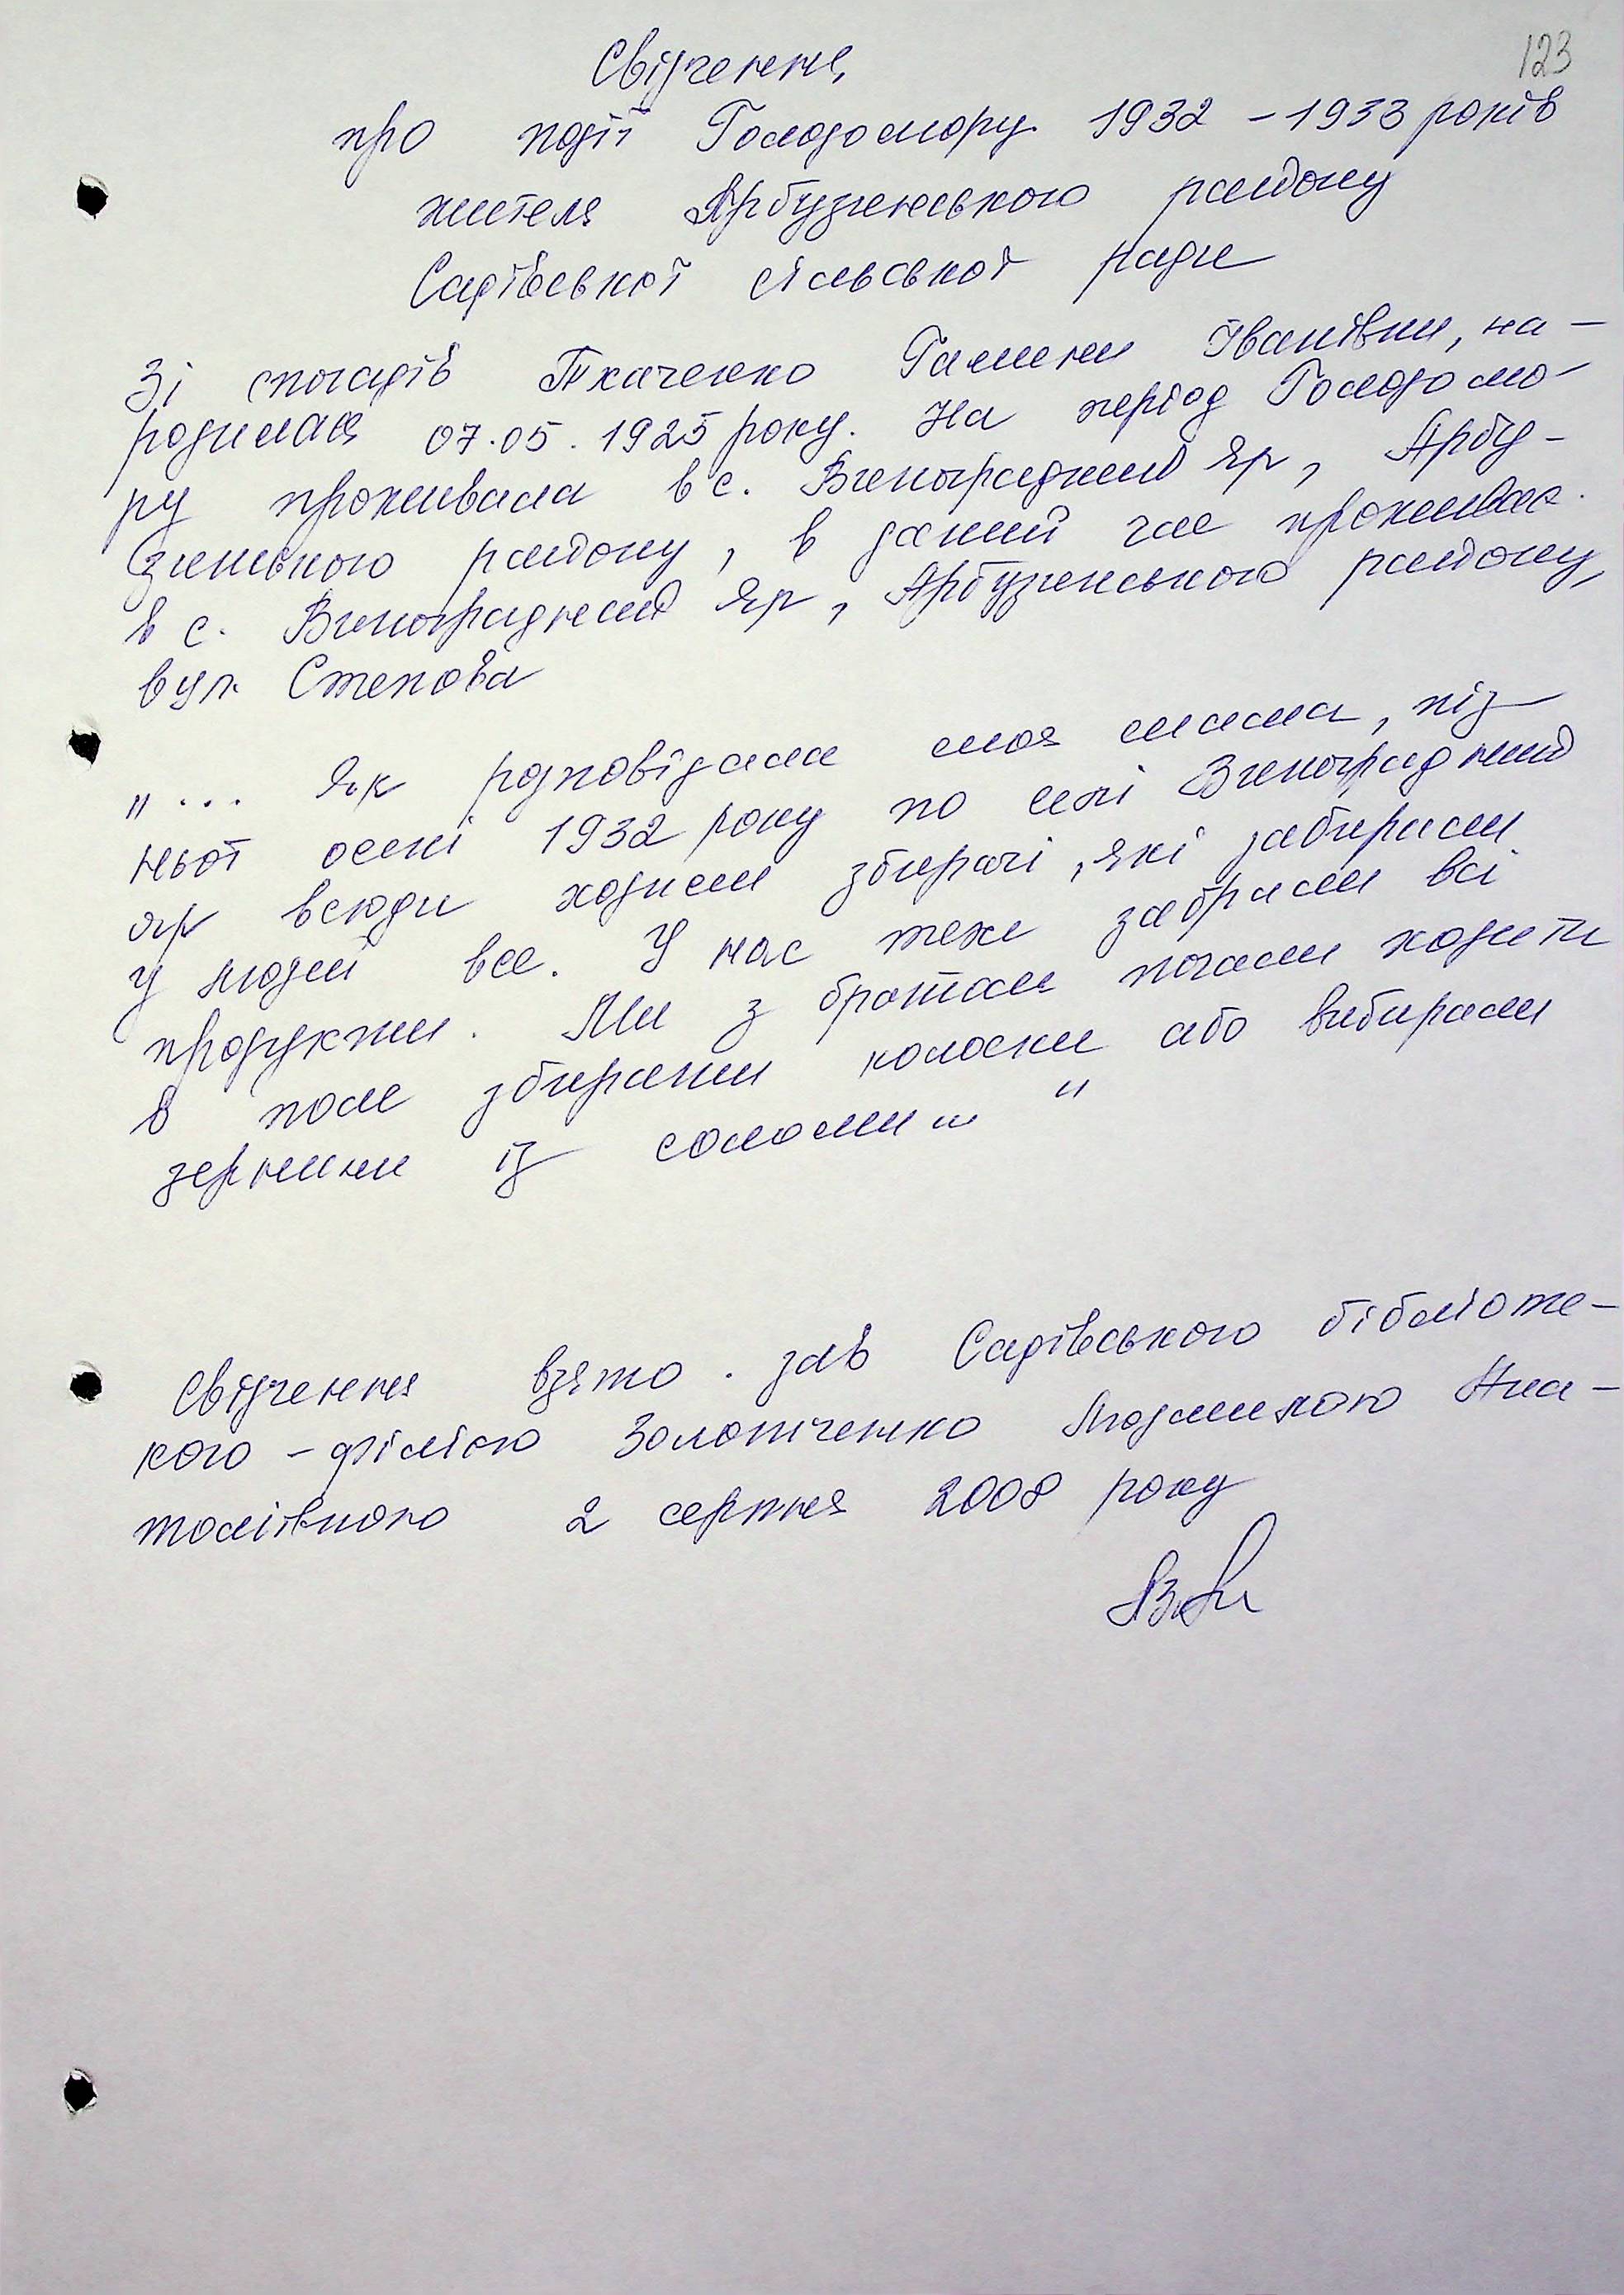 123
Свідчення,
про події Голодомору 1932 - 1933 років
жителя Арбузинського району
Садівської сільської ради
Зі спогадів Ткаченко Галини Іванівни, на-
родилася 07.05.1925 року. На період Голодомо-
ру проживала в с. Виноградний Яр, Арбу-
зинського району, в даний час проживає
в с. Виноградний Яр, Арбузинського району,
вул. Степова
„... Як розповідала моя мама, піз-
ньої осені 1932 року по селі Виноградний
яр всюди ходили збирачі, які забирали
у людей все. У нас теж забрали всі
продукти. Ми з братом почали ходити
в поле збирати колоски або вибирали
зернини із соломи..."
Свідчення взято зав Садівського бібліоте-
кого - філією Золотиченко Людмилою Ана-
толіївною 2 серпня 2008 року